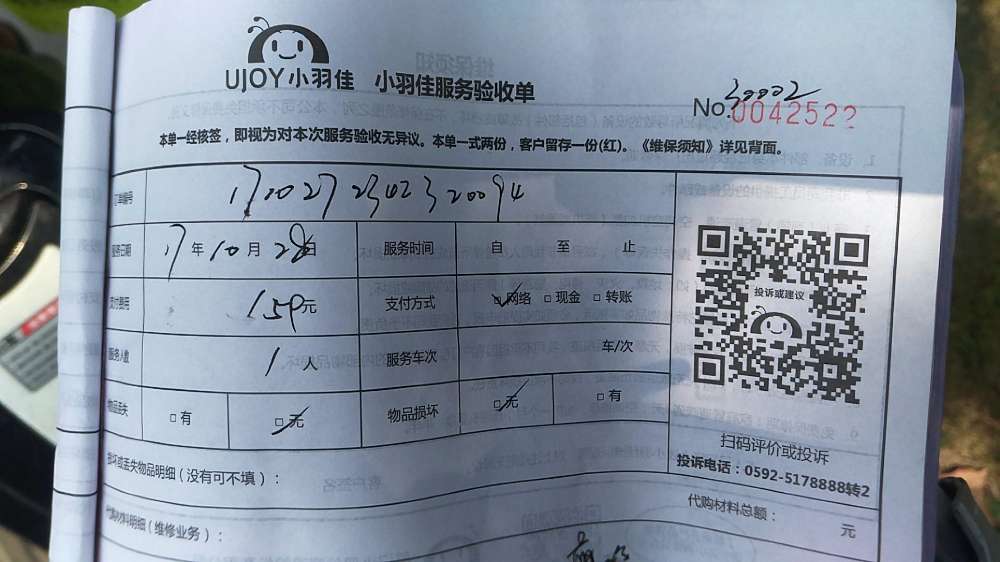 UJOY小羽佳 小羽佳服务验收单
30002
No.0042522
本单一经核签，即视为对本次服务验收无异议。本单一式两份，客户留存一份(红)。《维保须知》详见背面。
订单编号 1710272302320094
服务日期 17年10月28日 服务时间 自 至 止
支付费用 159元 支付方式 ☑网络 □现金 □转账
服务人数 1人 服务车次 车/次
物品丢失 □有 ☑无 物品损坏 ☑无 □有
投诉或建议
扫码评价或投诉
投诉电话：0592-5178888转2
损坏或丢失物品明细（没有可不填）：
代购材料明细（维修业务）：
代购材料总额： 元